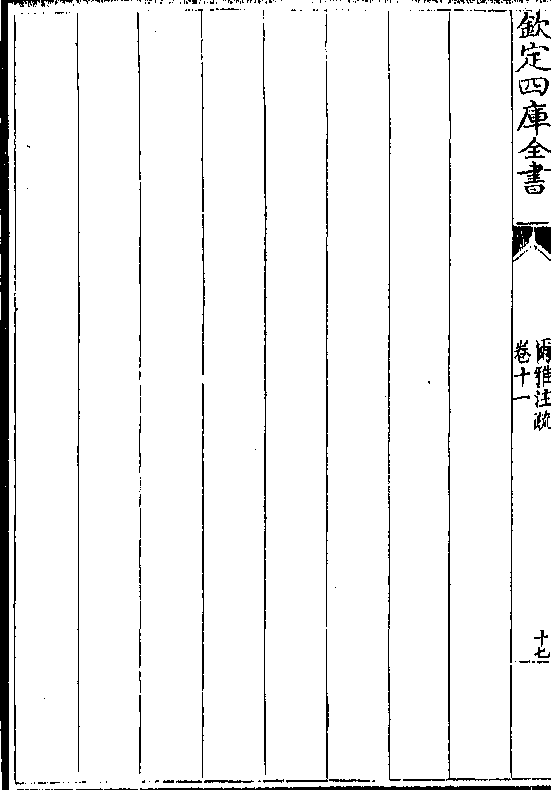 欽定四庫全書
爾雅注疏
卷十一
十七